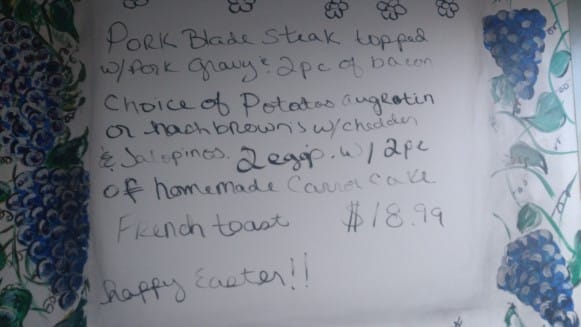 Pork Blade Steak topped
w/ Pork gravy & 2pc of bacon
Choice of Potatos augrotin
or hachbrown's w/ chedder
& Jalopinos. 2 eggs. w/ 2pc
of homemade Carrot cake
French toast $18.99
happy Easter!!